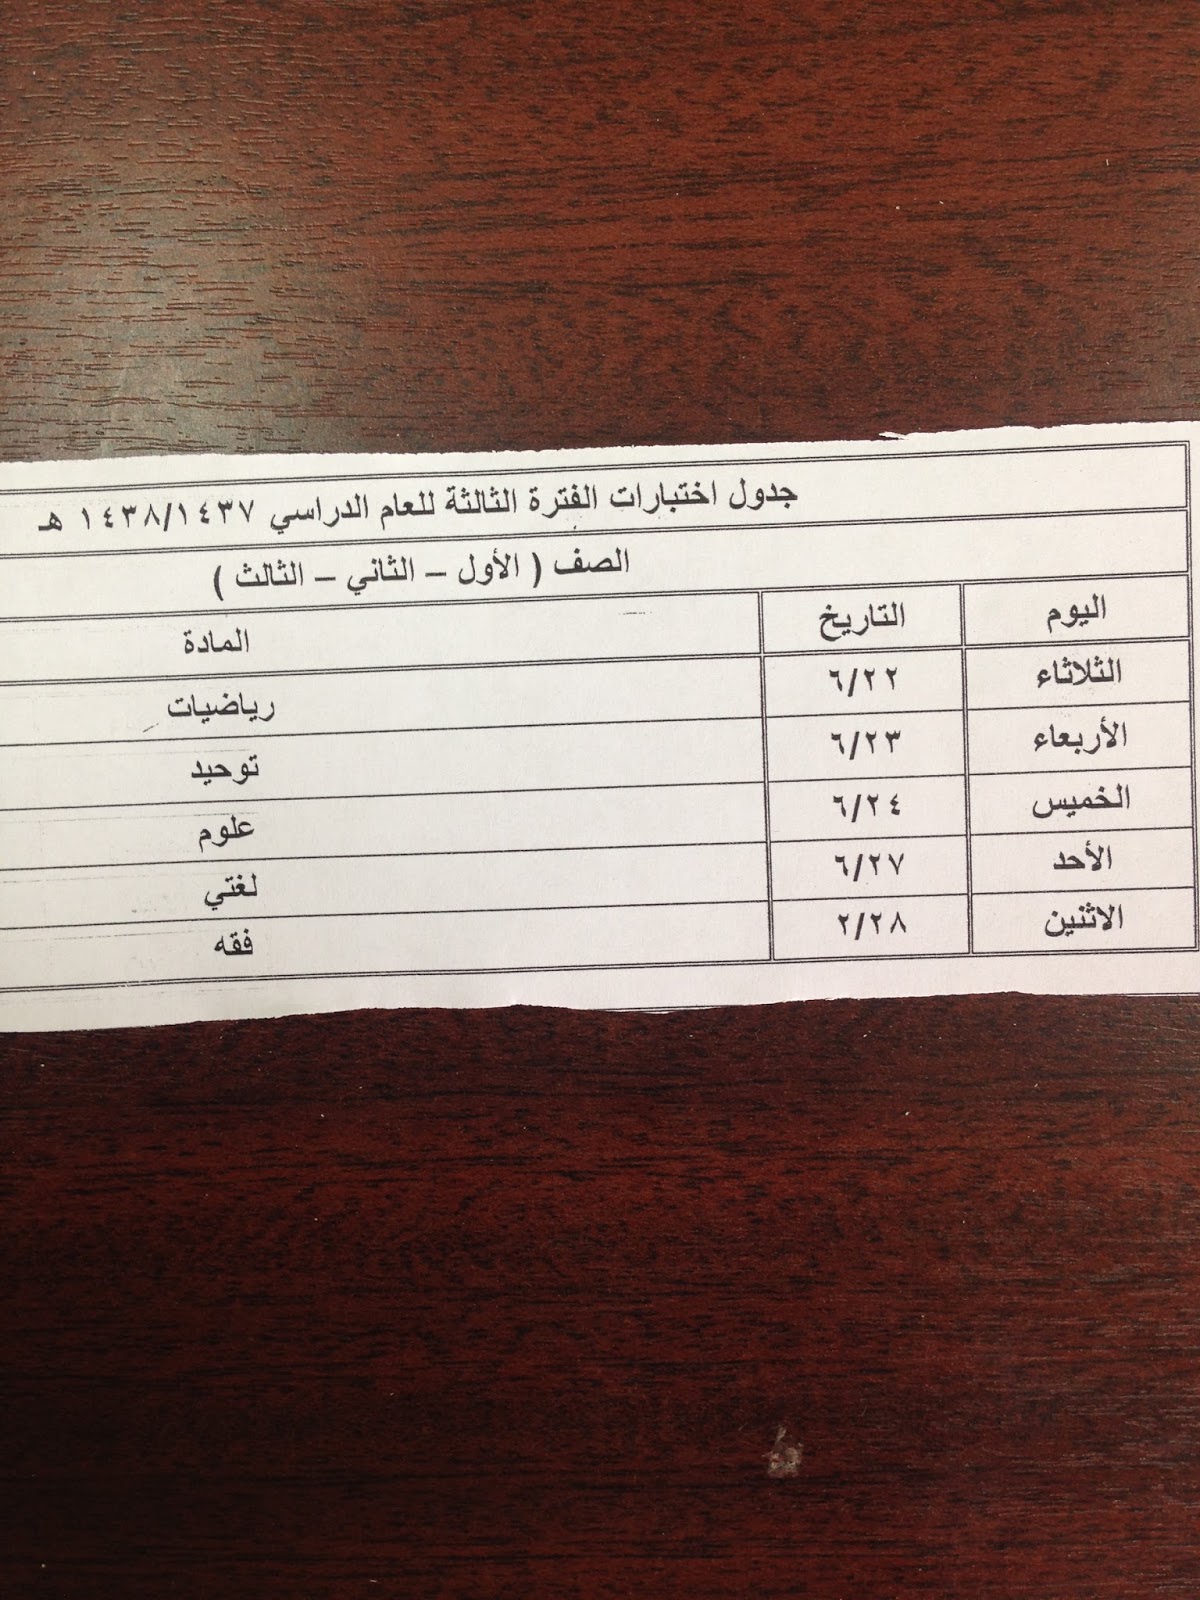 جدول اختبارات الفترة الثالثة للعام الدراسي ١٤٣٨/١٤٣٧ هـ
الصف ( الأول – الثاني – الثالث )
اليوم التاريخ المادة
الثلاثاء ٦/٢٢ رياضيات
الأربعاء ٦/٢٣ توحيد
الخميس ٦/٢٤ علوم
الأحد ٦/٢٧ لغتي
الاثنين ٢/٢٨ فقه